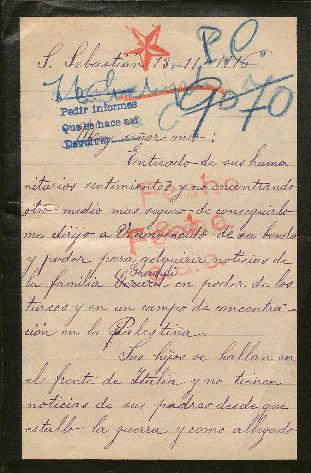 P. C
S. Sebastián 13-11-1915
9070
Pedir informes
Que se hace así
Devolver
Muy señor mio:
Enterado de sus huma
nitarios sentimientos y no encontrando
otro medio mas seguro de conseguirlo
me dirijo a V. convencido de su bondad
y poder para adquirir noticias de
la familia en poder de los
turcos y en un campo de concentra-
ción en la Palestina.
Sus hijos se hallan en
el frente de Italia y no tienen
noticias de sus padres desde que
estalló la guerra y como allegado